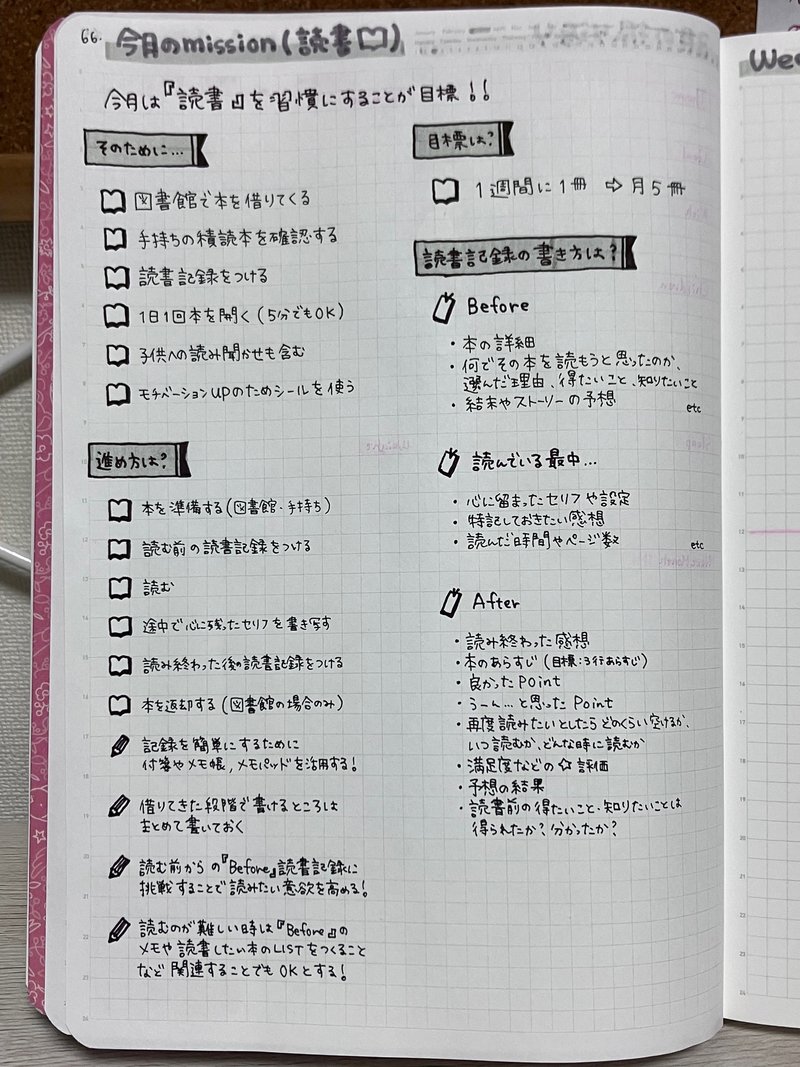 66.
今月のmission(読書)
今月は『読書』を習慣にすることが目標!!
そのために…
図書館で本を借りてくる
手持ちの積読本を確認する
読書記録をつける
1日1回本を開く(5分でもOK)
子供への読み聞かせも含む
モチベーションUPのためシールを使う
進め方は?
本を準備する(図書館・手持ち)
読む前の読書記録をつける
読む
途中で心に残ったセリフを書き写す
読み終わった後の読書記録をつける
本を返却する(図書館の場合のみ)
記録を簡単にするために
付箋やメモ帳,メモパッドを活用する!
借りてきた段階で書けるところは
まとめて書いておく
読む前からの『Before』読書記録に
挑戦することで読みたい意欲を高める!
読むのが難しい時は『Before』の
メモや読書したい本のLISTをつくること
など関連することでもOKとする!
目標は?
1週間に1冊 ⇨ 月5冊
読書記録の書き方は?
Before
・本の詳細
・何でその本を読もうと思ったのか、
選んだ理由、得たいこと、知りたいこと
・結末やストーリーの予想
etc
読んでいる最中…
・心に留まったセリフや設定
・特記しておきたい感想
・読んだ時間やページ数
etc
After
・読み終わった感想
・本のあらすじ(目標:3行あらすじ)
・良かったPoint
・うーん…と思ったPoint
・再度読みたいとしたらどのくらい空けるか、
いつ読むか、どんな時に読むか
・満足度などの☆評価
・予想の結果
・読書前の得たいこと・知りたいことは
得られたか?分かったか?